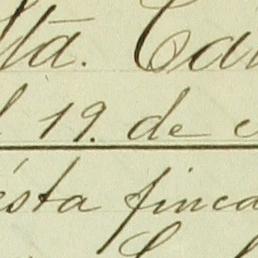 sta. Ca
l 19. de
ésta finca